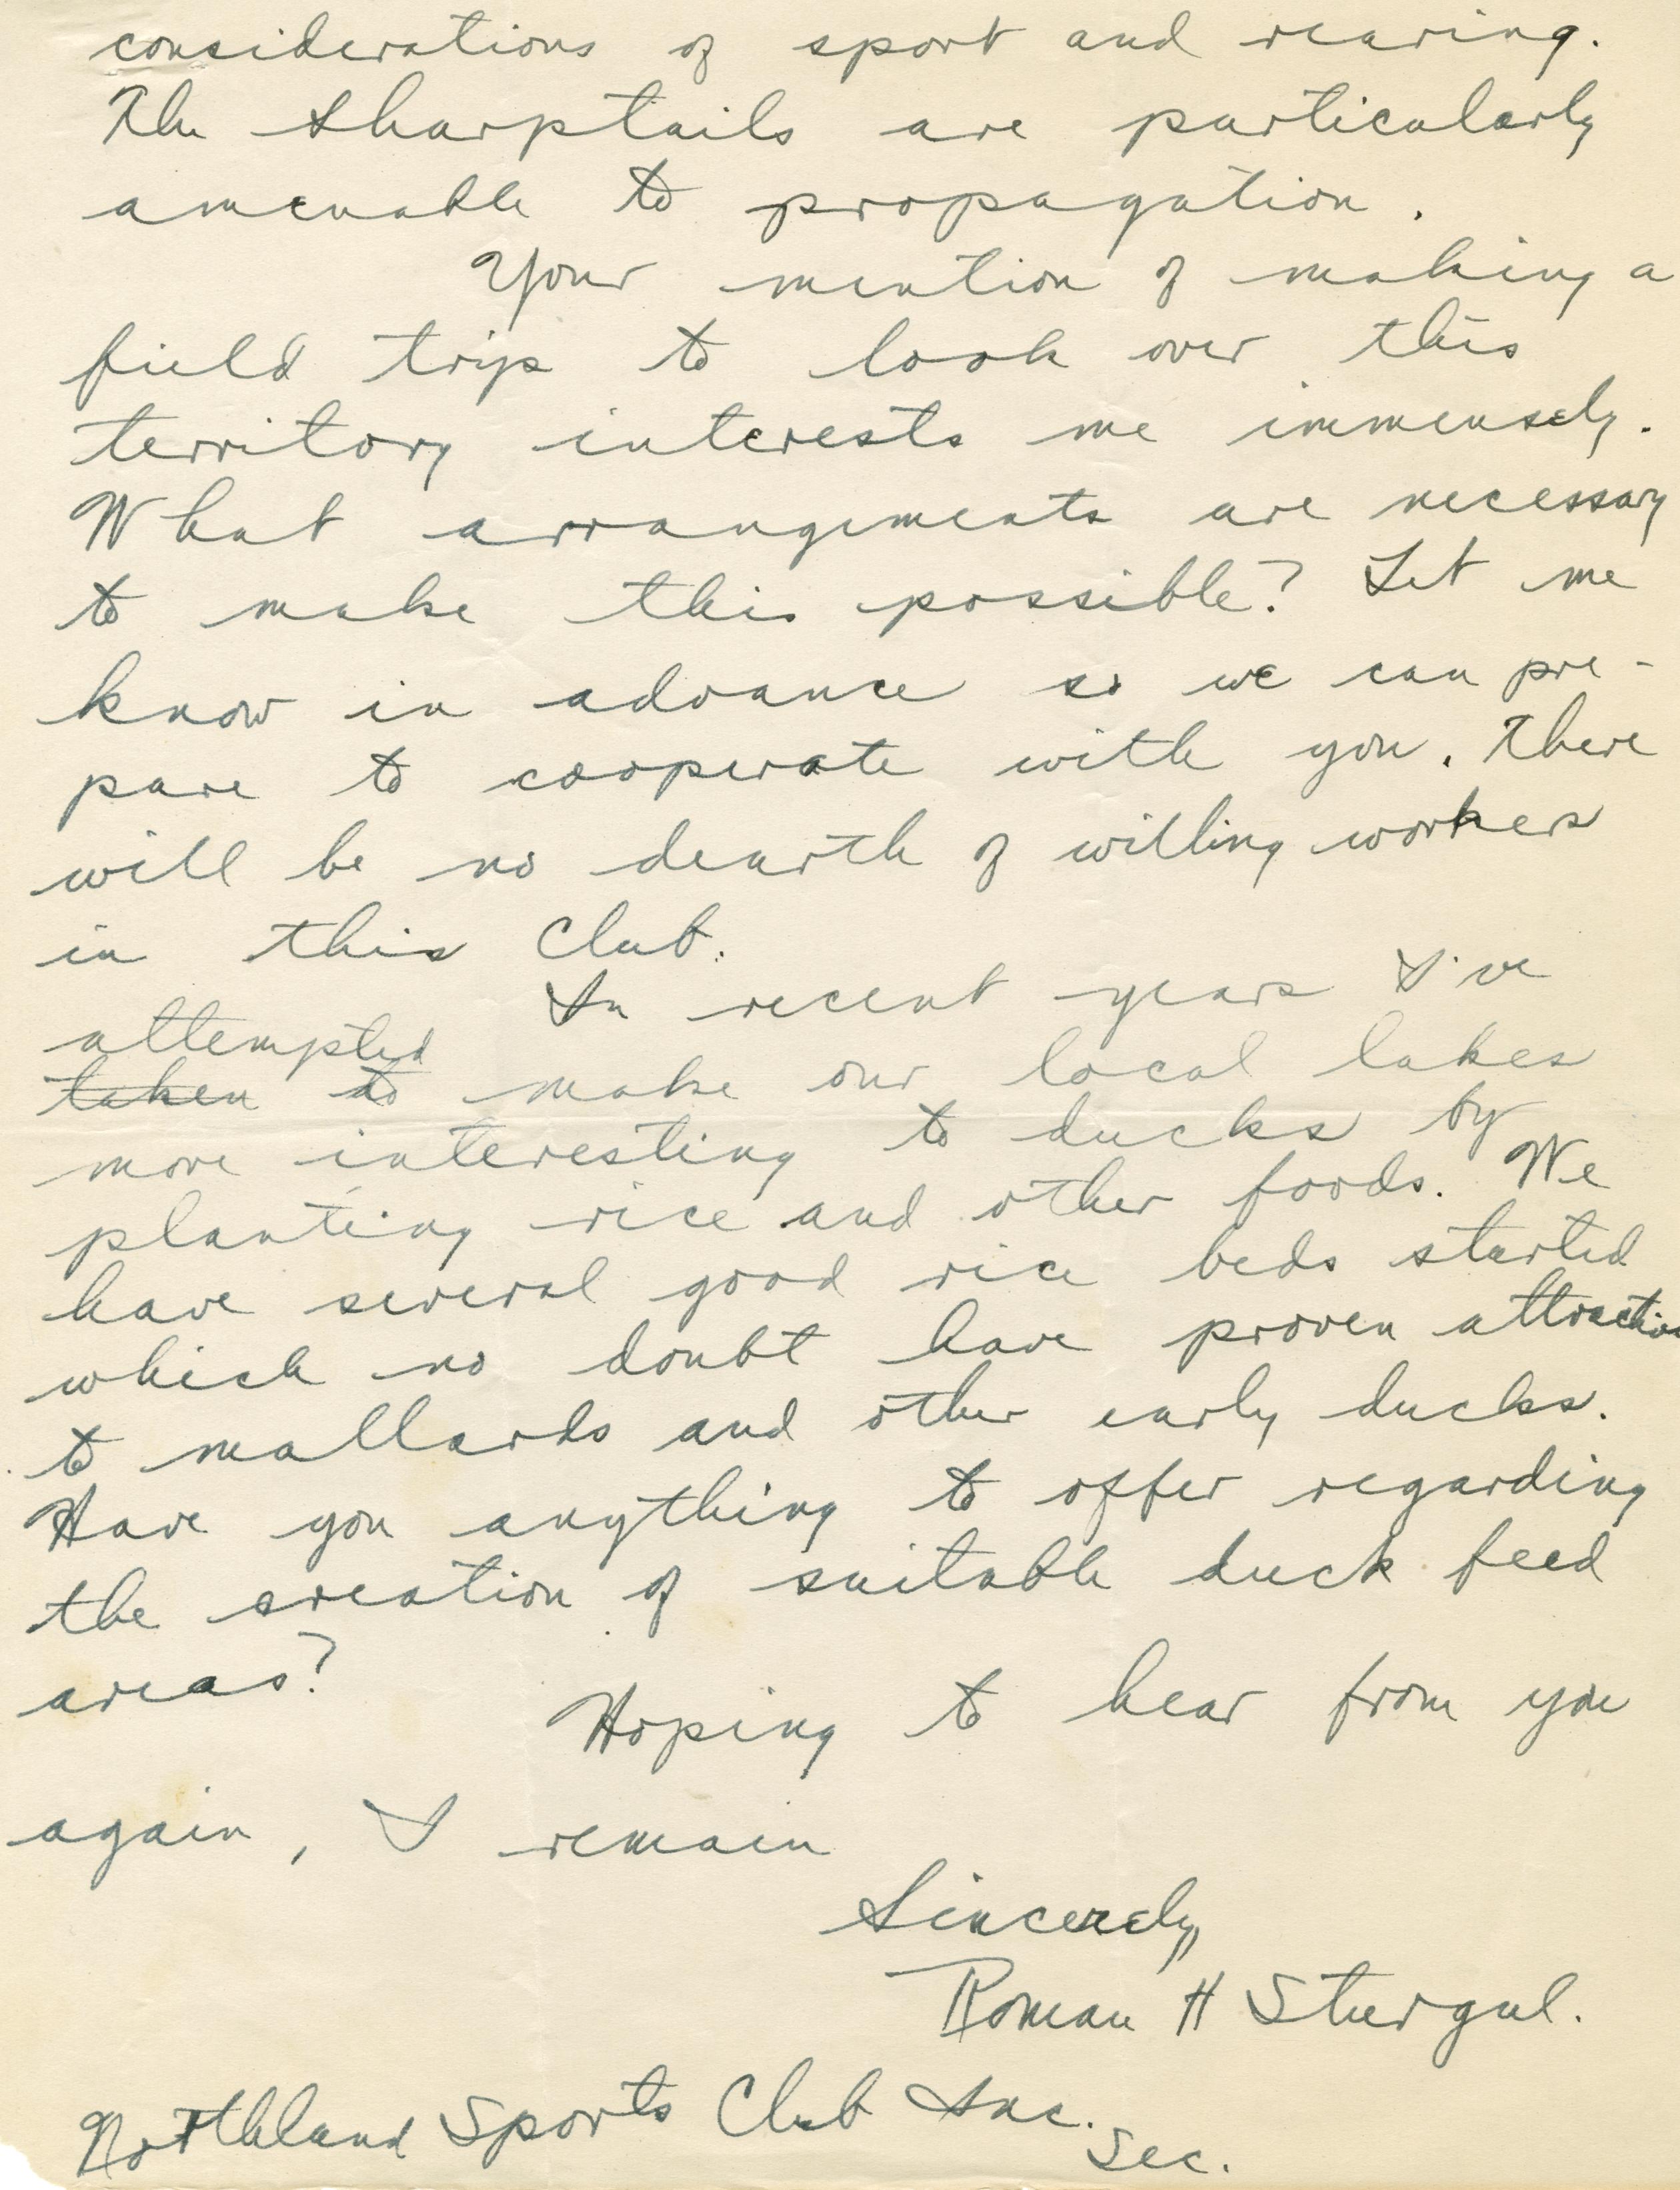 considerations of sport and rearing.
The Sharptails are particularly
amenable to propagation.
Your mention of making a
field trip to look over this
territory interests me immensely.
What arrangements are necessary
to make this possible? Let me
know in advance so we can pre-
pare to cooperate with you. There
will be no dearth of willing workers
in this Club.
In recent years I've
attempted
taken to make our local lakes
more interesting to ducks by
planting rice and other foods. We
have several good rice beds started
which no doubt have proven attractive
to mallards and other early ducks.
Have you anything to offer regarding
the creation of suitable duck feed
areas?
Hoping to hear from you
again, I remain
Sincerely,
Roman H Sturgul.
Northland Sports Club Inc.
Sec.